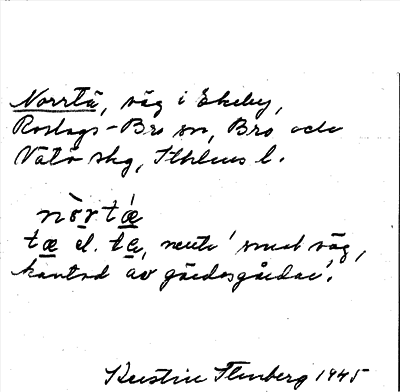 Norrtä, väg i Ekeby,
Roslags-Bro sn, Bro och
Vätö skg, Sthlms l.
nòrtǽ
tæ el. ta, neutr. 'smal väg,
kantad av gärdesgårdar'.
Kerstin Flenberg 1945